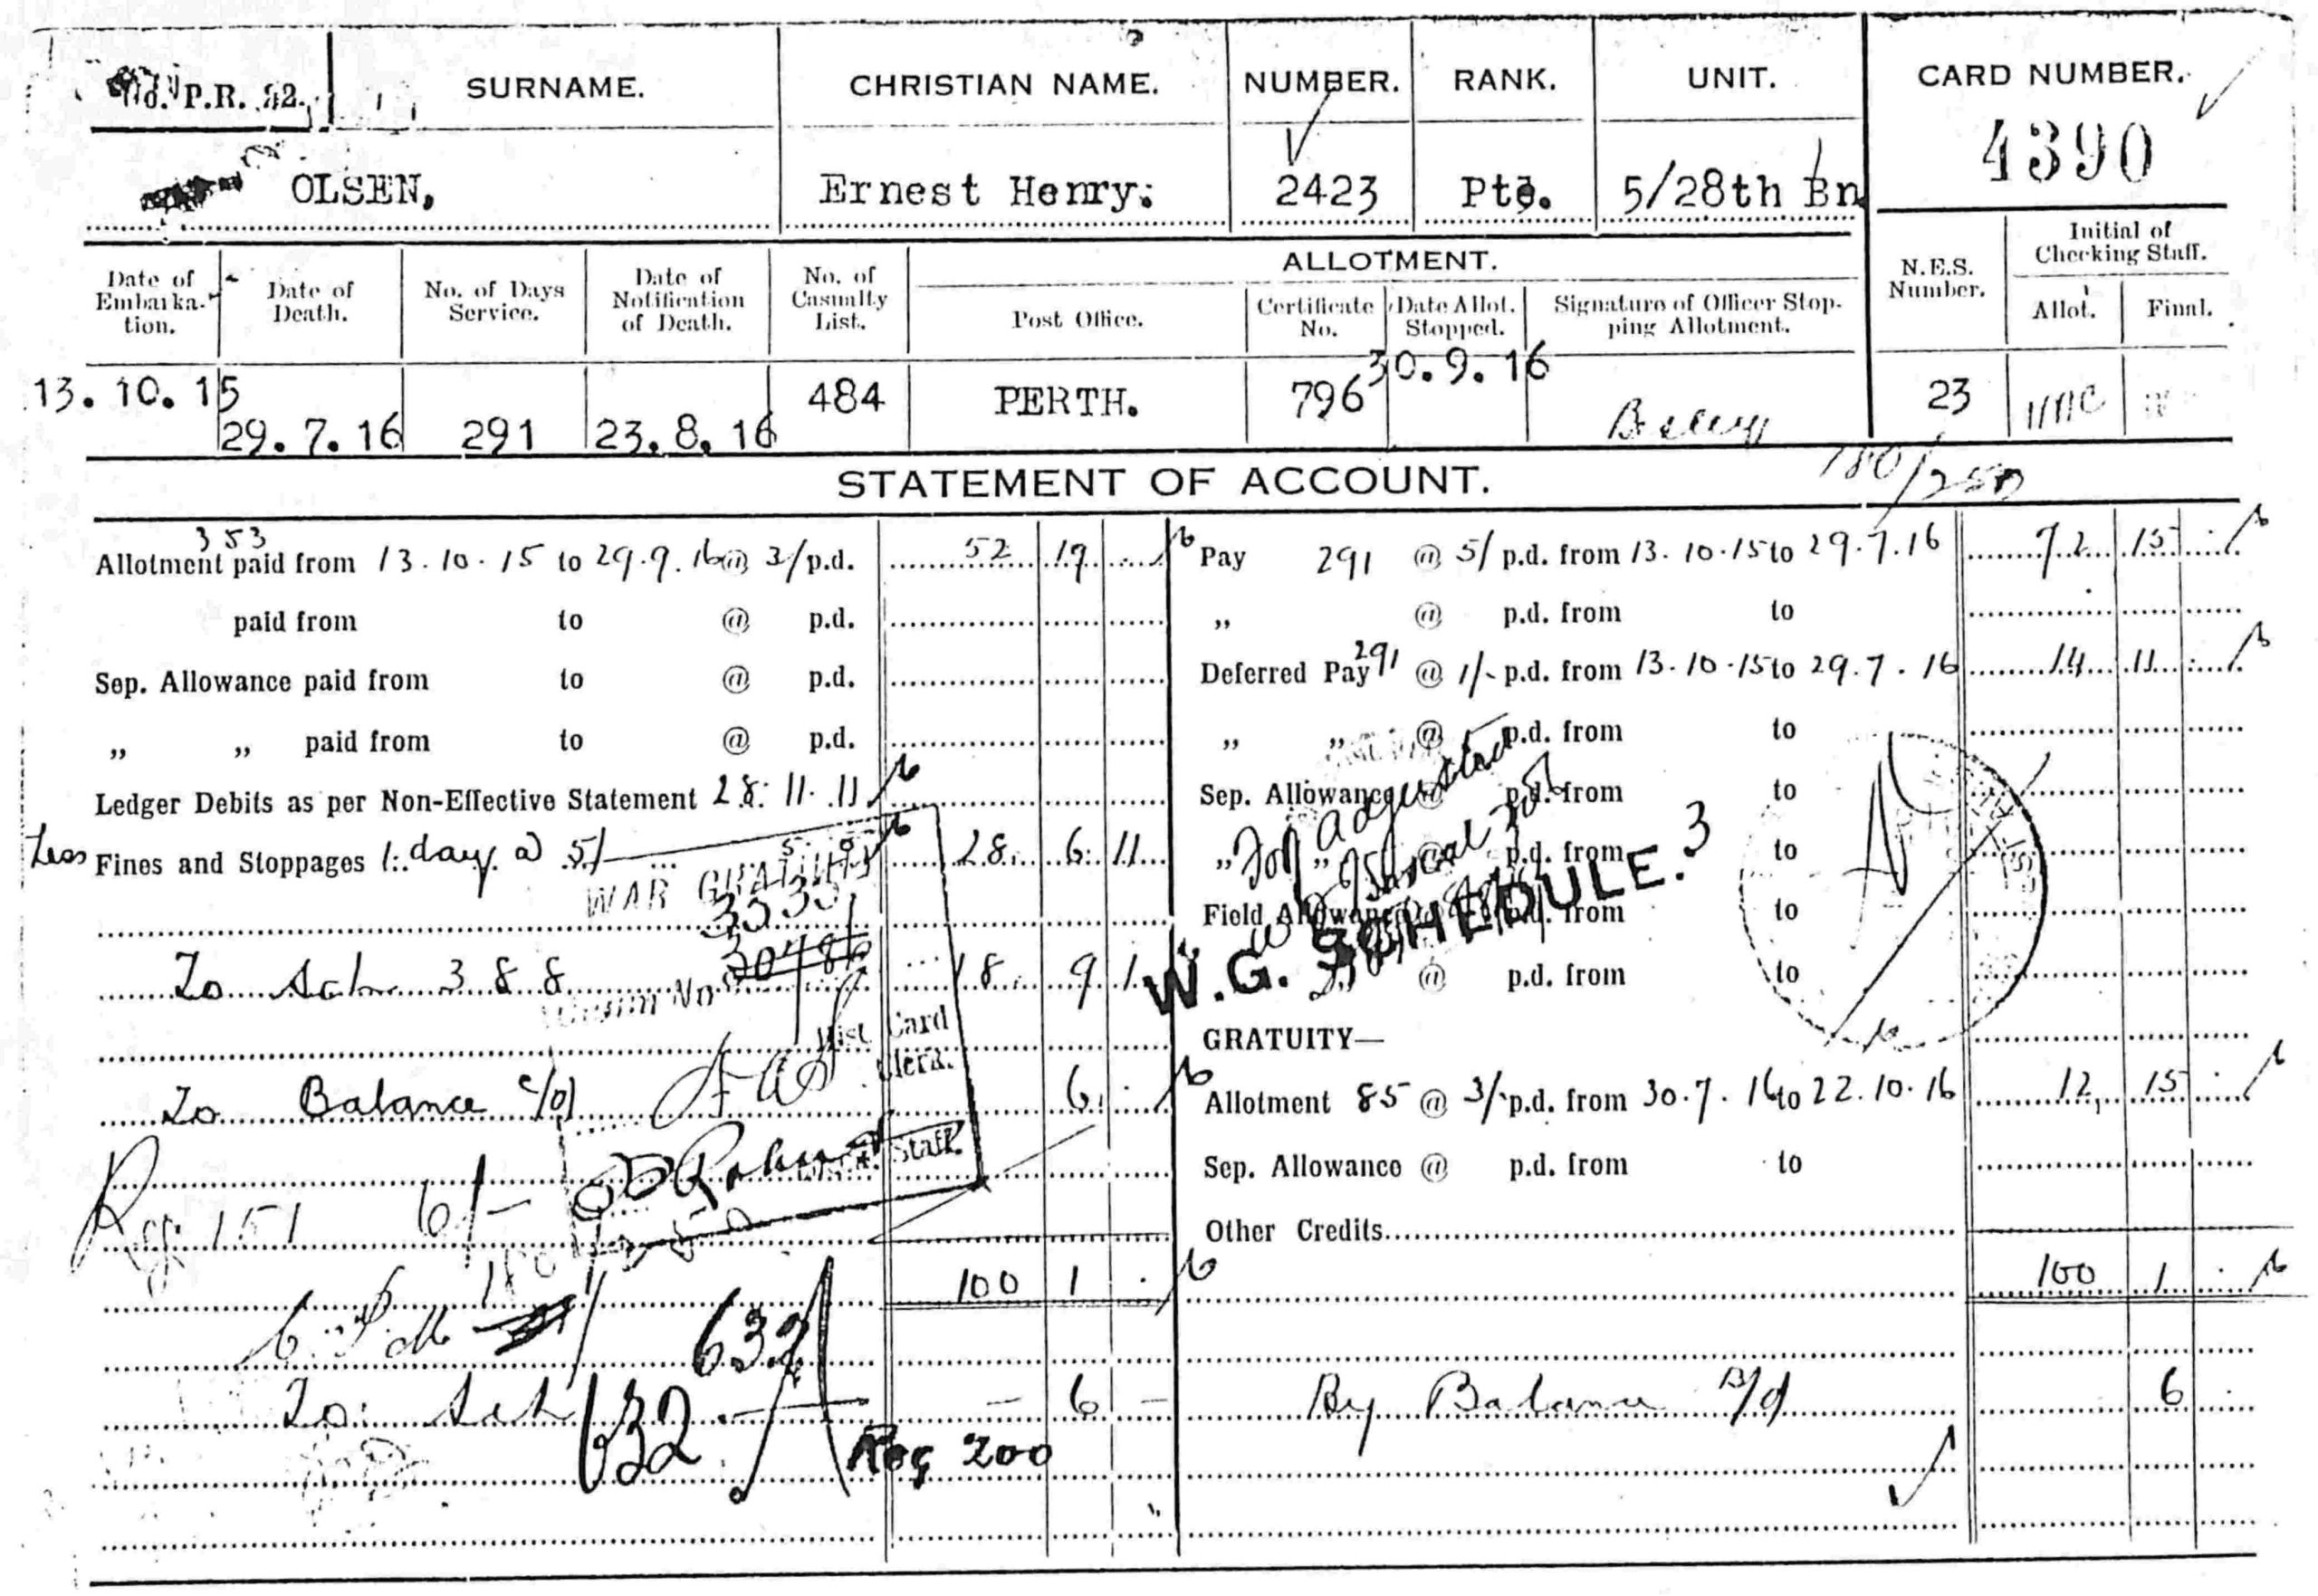 P.R. 22.
SURNAME. CHRISTIAN NAME. NUMBER. RANK. UNIT. CARD NUMBER.
4390
OLSEN, Ernest Henry. 2423 Pte. 5/28th Bn
Date of Embarkation. Date of Death. No. of Days Service. Date of Notification of Death. No. of Casualty List. ALLOTMENT. N.E.S. Number. Initial of Checking Staff.
Post Office. Certificate No. Date Allot. Stopped. Signature of Officer Stopping Allotment. Allot. Final.
13.10.15 29.7.16 291 23.8.16 484 PERTH. 796 30.9.16 23
STATEMENT OF ACCOUNT.
353
Allotment paid from 13.10.15 to 29.9.16 @ 3/ p.d. 52 19
paid from to @ p.d.
Sep. Allowance paid from to @ p.d.
„ „ paid from to @ p.d.
Ledger Debits as per Non-Effective Statement 28. 11. 11
Less Fines and Stoppages 1 day @ 5/ 5. 0 28. 6. 11
WAR GRATUITY
3535
Claim No 30486
388 18. 9. 1
Hist. Card Clerk.
To Balance c/d 6
Staff.
Reg. 151 6/-
180/250
100 1
632
To 632 - 6 -
Reg 200
180/250
Pay 291 @ 5/ p.d. from 13.10.15 to 29.7.16 72 15
„ @ p.d. from to
Deferred Pay 291 @ 1/- p.d. from 13.10.15 to 29.7.16 14 11
„ „ @ p.d. from to
Sep. Allowance @ p.d. from to
„ „ @ p.d. from to
Field Allowance @ p.d. from to
„ @ p.d. from to
adjusted
W.G. SCHEDULE. 3
GRATUITY—
Allotment 85 @ 3/- p.d. from 30.7.16 to 22.10.16 12 15
Sep. Allowance @ p.d. from to
Other Credits
100 1
By Balance B/d 6